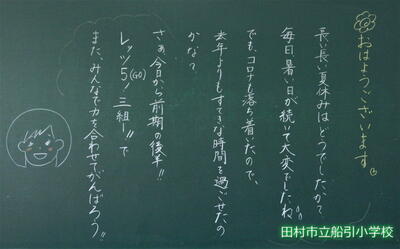 おはようございます。
長い長い夏休みはどうでしたか？
毎日暑い日が続いて大変でしたね。
でも、コロナも落ち着いたので、
去年よりもすてきな時間を過ごせたの
かな？
さぁ今日から前期の後半!!
レッツ5(GO)!三組!!で
また、みんなで力を合わせてがんばろう!!
田村市立船引小学校